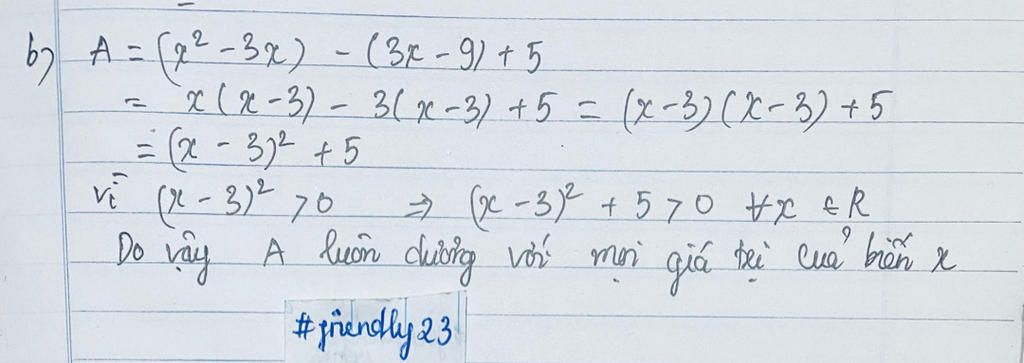 b) A = (x² - 3x) - (3x - 9) + 5
= x(x - 3) - 3(x - 3) + 5 = (x - 3)(x - 3) + 5
= (x - 3)² + 5
Vì (x - 3)² > 0 ⇒ (x - 3)² + 5 > 0 ∀x ∈ R
Do vậy A luôn dương với mọi giá trị của biến x
#friendly23